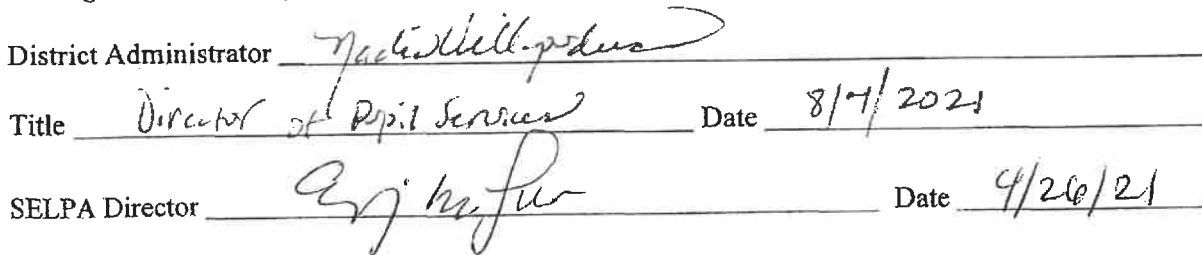 District Administrator
Title Director of Pupil Services Date 8/7/2021
SELPA Director Date 4/26/21